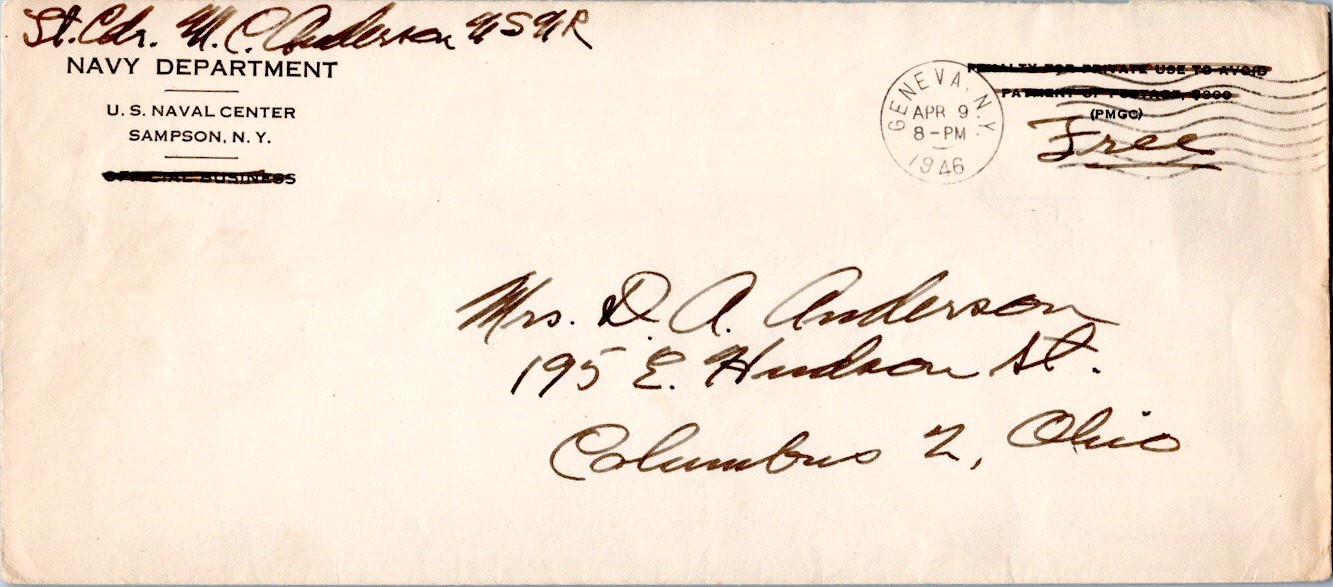 Lt. Cdr. M. C. Anderson USNR
NAVY DEPARTMENT
U. S. NAVAL CENTER
SAMPSON, N. Y.
OFFICIAL BUSINESS
GENEVA, N.Y.
APR 9
8-PM
1946
PENALTY FOR PRIVATE USE TO AVOID
PAYMENT OF POSTAGE, $300
(PMGC)
Free
Mrs. D. A. Anderson
195 E. Hudson St.
Columbus 2, Ohio